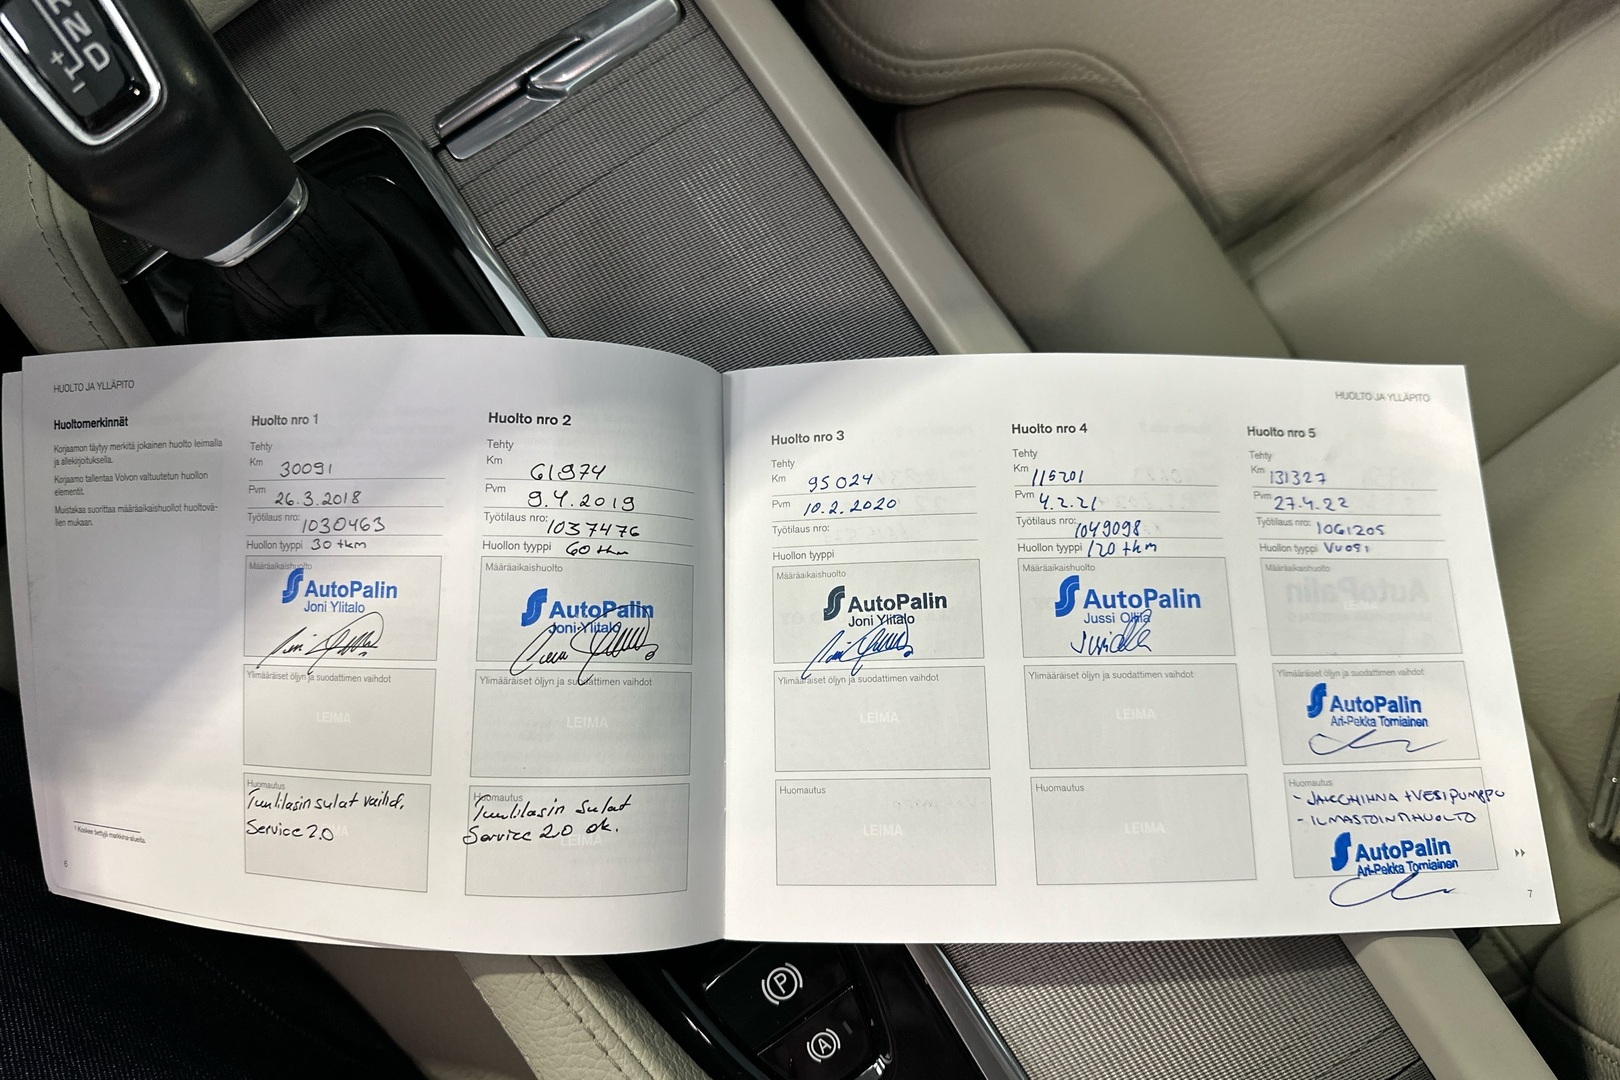 R
N
D
+
-
HUOLTO JA YLLÄPITO
Huoltomerkinnät
Korjaamon täytyy merkitä jokainen huolto leimalla
ja allekirjoituksella.
Korjaamo tallentaa Volvon valtuutetun huollon
elementit.
Muistakaa suorittaa määräaikaishuollot huoltovä-
lien mukaan.
1 Koskee tiettyjä markkina-alueita.
6
Huolto nro 1
Tehty
Km 30091
Pvm 26.3.2018
Työtilaus nro: 1030463
Huollon tyyppi 30 tkm
Määräaikaishuolto
AutoPalin
Joni Ylitalo
Ylimääräiset öljyn ja suodattimen vaihdot
LEIMA
Huomautus
Tuulilasin sulat vaihd.
Service 2.0
Huolto nro 2
Tehty
Km 61974
Pvm 9.4.2019
Työtilaus nro: 1037476
Huollon tyyppi 60 tkm
Määräaikaishuolto
AutoPalin
Joni Ylitalo
Ylimääräiset öljyn ja suodattimen vaihdot
LEIMA
Huomautus
Tuulilasin sulat
Service 2.0 ok.
LEIMA
Huolto nro 3
Tehty
Km 95024
Pvm 10.2.2020
Työtilaus nro:
Huollon tyyppi
Määräaikaishuolto
AutoPalin
Joni Ylitalo
Ylimääräiset öljyn ja suodattimen vaihdot
LEIMA
Huomautus
LEIMA
Huolto nro 4
Tehty
Km 115201
Pvm 4.2.21
Työtilaus nro: 1049098
Huollon tyyppi 120 tkm
Määräaikaishuolto
AutoPalin
Jussi Ollila
Ylimääräiset öljyn ja suodattimen vaihdot
LEIMA
Huomautus
LEIMA
HUOLTO JA YLLÄPITO
Huolto nro 5
Tehty
Km 131327
Pvm 27.4.22
Työtilaus nro: 1061205
Huollon tyyppi Vuosi
Määräaikaishuolto
LEIMA
Ylimääräiset öljyn ja suodattimen vaihdot
AutoPalin
Ari-Pekka Torniainen
Huomautus
- JAKOHIHNA + VESIPUMPPU
- ILMASTOINTIHUOLTO
AutoPalin
Ari-Pekka Torniainen
7
P
A